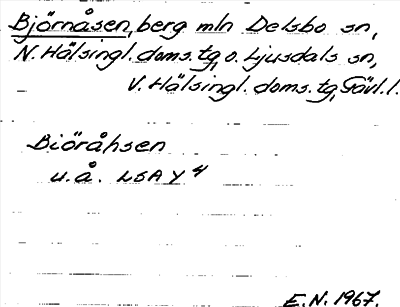 Björnåsen, berg mln Delsbo sn,
N. Hälsingl. doms. tg, o. Ljusdals sn,
V. Hälsingl. doms. tg, Gävl. l.
Biöråhsen
u.å. LSA Y 4
E.N. 1967.